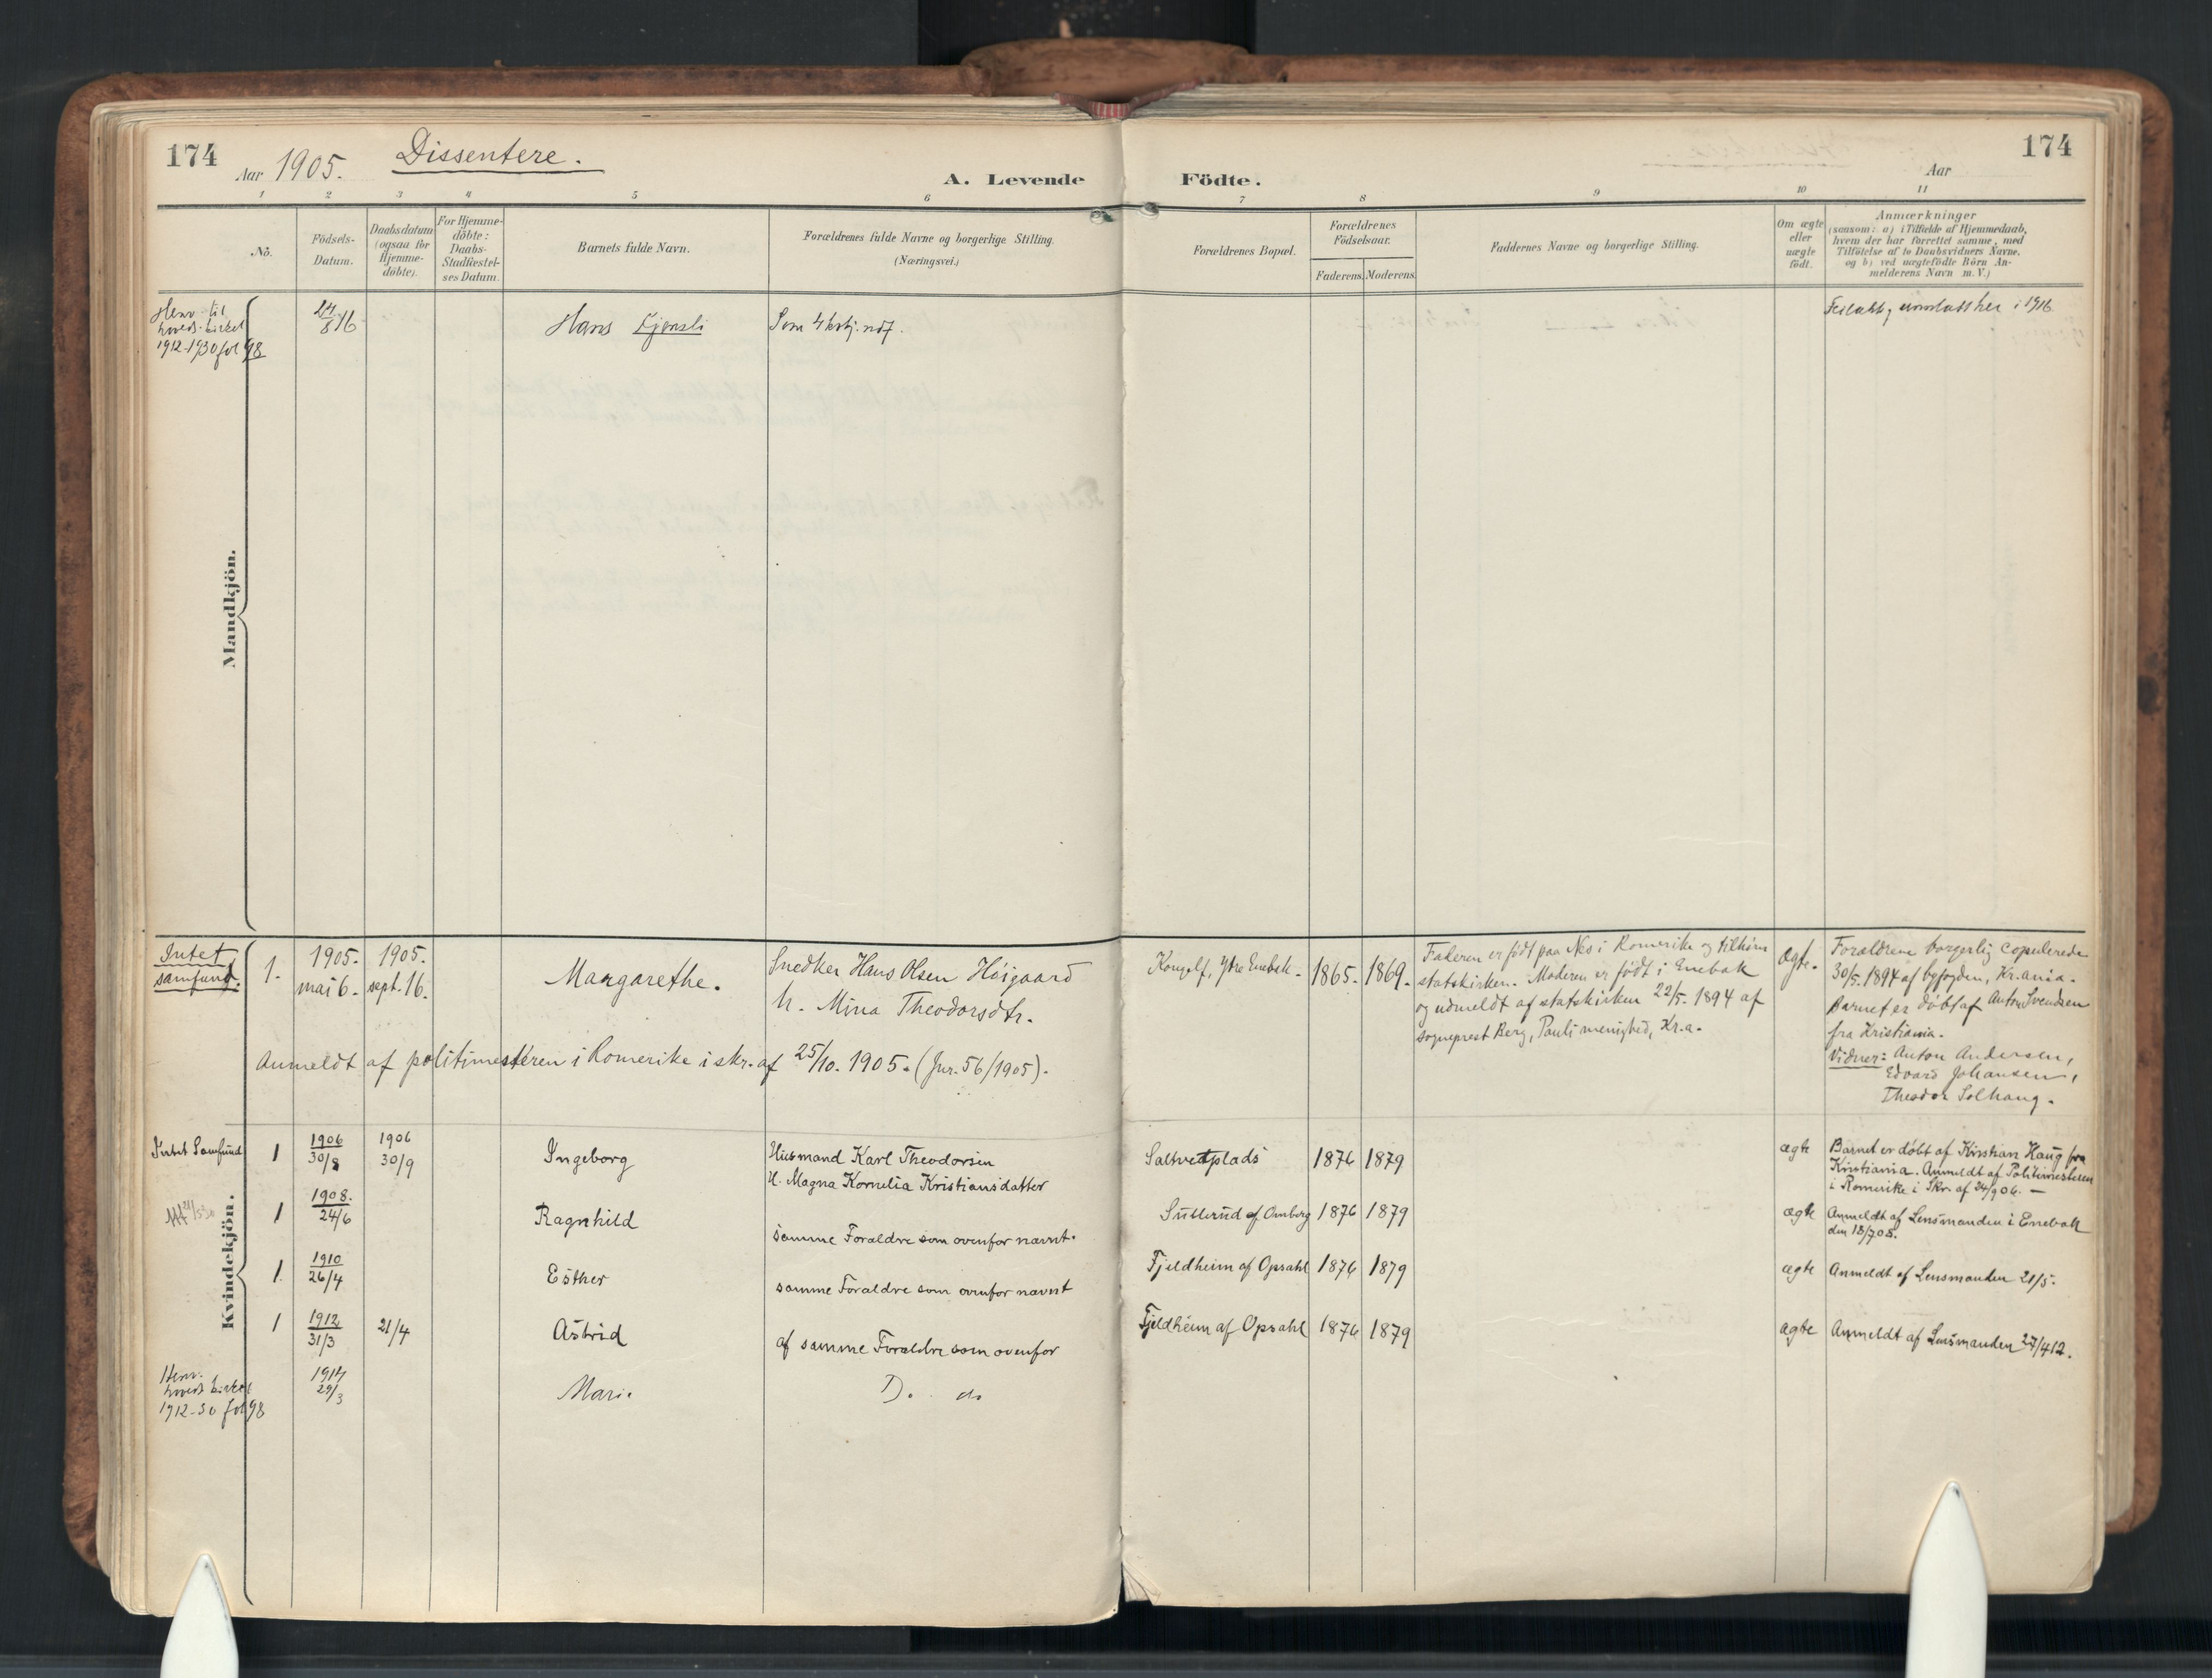 174
Aar 1905.
Dissentere.
A. Levende Födte.
Aar
174
1 2 3 4 5 6 7 8 9 10 11
No.
Födsels-
Datum.
Daabsdatum
(ogsaa for
Hjemme-
döbte).
For Hjemme-
döbte:
Daabs-
Stadfæstel-
ses Datum.
Barnets fulde Navn.
Forældrenes fulde Navne og borgerlige Stilling.
(Næringsvei.)
Forældrenes Bopæl.
Forældrenes
Födselsaar.
Faderens. Moderens.
Faddernes Navne og borgerlige Stilling.
Om ægte
eller
uægte
födt.
Anmærkninger
(saasom: a) i Tilfælde af Hjemmedaab,
hvem der har forrettet samme, med
Tilföielse af to Daabsvidners Navne,
og b) ved uægtefödte Börn An-
melderens Navn m. V.)
Mandkjön.
Henv. til
hoved.
1912-1930 fol 98
24/8 16
Hans
Som 4
her i 1916
Kvindekjön.
Intet
samfund.
1.
1905.
mai 6.
1905.
sept. 16.
Margarethe.
Snedker Hans Olsen Höigaard
h. Mina Theodorsdtr.
Ytre Enebak.
1865.
1869.
Faderen er født paa Nes i Romerike og tilhører
statskirken. Moderen er født i Enebak
og udmeldt af statskirken 22/5. 1894 af
sogneprest Berg, Pauli menighed, Kr.a.
Ægte.
Forældrene borgerlig copulerede
30/5. 1894 af byfogden, Kr.ania.
Barnet er døbt af Anton Svendsen
fra Kristiania.
Vidner: Anton Andersen,
Edvard Johansen,
Theodor Solhaug.
Anmeldt af politimesteren i Romerike i skr. af 25/10. 1905. (Jnr. 56/1905).
Intet Samfund
1
1906
30/8
1906
30/9
Ingeborg
Husmand Karl Theodorsen
H. Magna Kornelia Kristiansdatter
Saltvedtplads
1876
1879
ægte
Barnet er døbt af Kristian Haug fra
Kristiania. Anmeldt af Politimesteren
i Romerike i Skr. af 24/9 06. —
1
1908.
24/6
Ragnhild
samme Forældre som ovenfor nævnt.
af Omberg
1876
1879
ægte
Anmeldt af Lensmanden i Enebak
den 18/7 08.
1
1910
26/4
Esther
samme Forældre som ovenfor nævnt
Fjeldheim af Opsahl
1876
1879
ægte
Anmeldt af Lensmanden 21/5.
1
1912
31/3
21/4
Astrid
af samme Forældre som ovenfor
Fjeldheim af Opsahl
1876
1879
ægte
Anmeldt af Lensmanden 27/4 12.
Henv.
1912-30 fol 98
1914
29/3
Marie
Do. do